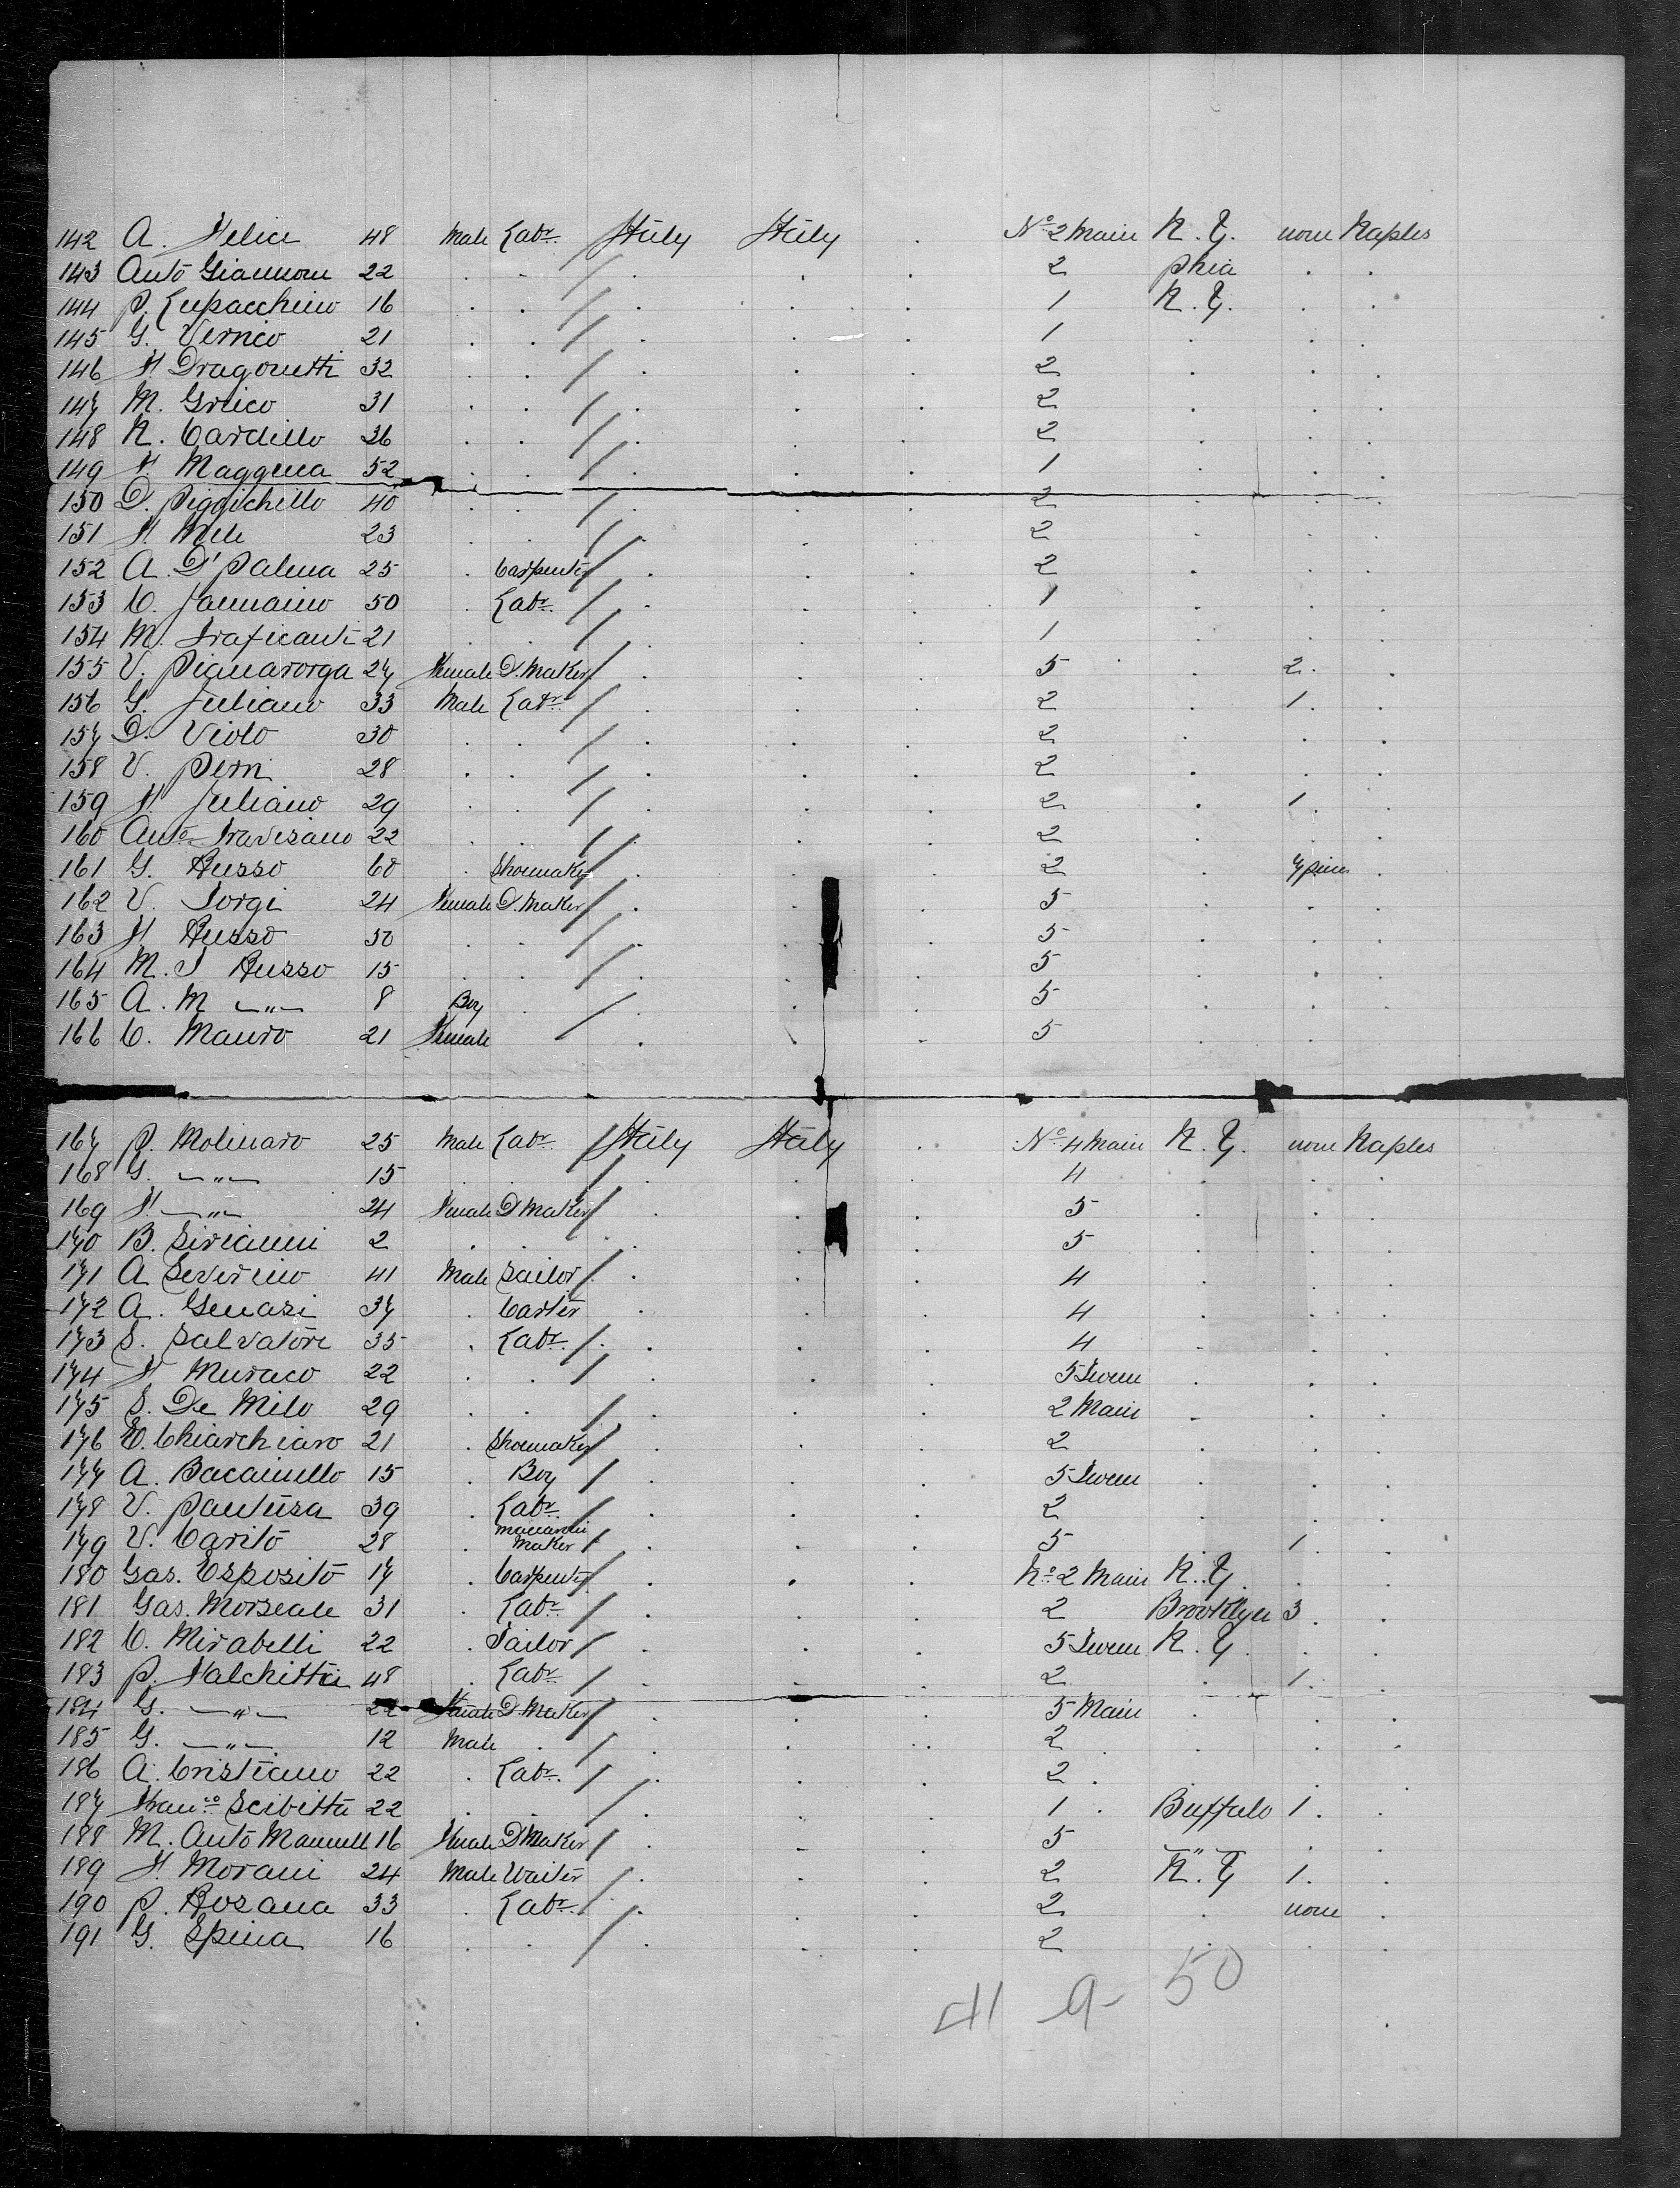 142 A. Felice 48 Male Labr. Italy Italy . No 2 Main N.Y. none Naples
143 Anto Giannoni 22 . . . . . 2 Phia . .
144 P. Lupacchino 16 . . . . . 1 N.Y. . .
145 G. Vernico 21 . . . . . 1 . . .
146 F. Dragonetti 32 . . . . . 2 . . .
147 M. Grieco 31 . . . . . 2 . . .
148 N. Cardillo 36 . . . . . 2 . . .
149 F. 52 . . . . . 1 . . .
150 D. 40 . . . . . 2 . . .
151 F. Mele 23 . . . . . 2 . . .
152 A. D'Palma 25 . Carpenter . . . 2 . . .
153 C. Jannaino 50 . Labr. . . . 1 . . .
154 M. Traficanti 21 . . . . . 1 . . .
155 V. 27 Female D. Maker . . . 5 . 2 .
156 G. Juliano 33 Male Labr. . . . 2 . 1 .
157 D. Violo 30 . . . . . 2 . . .
158 V. Perri 28 . . . . . 2 . . .
159 F. Juliano 29 . . . . . 2 . 1 .
160 Anto Travisano 22 . . . . . 2 . . .
161 G. Russo 60 . Shoemaker . . . 2 . 7 pieces .
162 V. Iorgi 24 Female D. Maker . . . 5 . . .
163 F. Russo 50 . . . . . 5 . . .
164 M. T Russo 15 . . . . . 5 . . .
165 A. M —"— 8 Boy . . . . 5 . . .
166 C. Mauro 21 Female . . 5 . . .
167 P. Molinaro 25 Male Labr. Italy Italy . No 4 Main N.Y. none Naples
168 G. —"— 15 . . . . . 4 . . .
169 F. —"— 24 Female D Maker . . . 5 . . .
170 B. Sirianni 2 . . . . . 5 . . .
171 A Severino 41 Male Sailor . . . 4 . . .
172 A. Genasi 37 . Carter . . . 4 . . .
173 S. Salvatore 35 . Labr. . . . 4 . . .
174 F Muraco 22 . . . . . 5 Tween . . .
175 S. De Milo 29 . . . . . 2 Main . . .
176 E. Chiarchiaro 21 . Shoemaker . . . 2 . . .
177 A. 15 . Boy . . . 5 Tween . . .
178 V. Pantusa 39 . Labr. . . . 2 . . .
179 V. Carito 28 . Maccaroni Maker . . . 5 . 1 .
180 Gas. Esposito 17 . Carpenter . . . No 2 Main N.Y. . .
181 Gas. Morseale 31 . Labr. . . . 2 Brooklyn 3 .
182 C. Mirabelli 22 . Tailor . . . 5 Tween N.Y. . .
183 P. Falchitta 48 . Labr. . . . 2 . 1 .
184 G. —"— 22 Female D. Maker . . . 5 Main . . .
185 G. —"— 12 Male . . . . 2 . . .
186 A. Cristiano 22 . Labr. . . . 2 . . .
187 Franco Scibitta 22 . . . . . 1 Buffalo 1 .
188 M. Anto 16 Female D Maker . . . 5 " . .
189 F. Morani 24 Male Waiter . . . 2 N.Y 1 .
190 P. Rosana 33 . Labr. . . . 2 . none .
191 G. Spina 16 . . . . . 2 . . .
41 9- 50